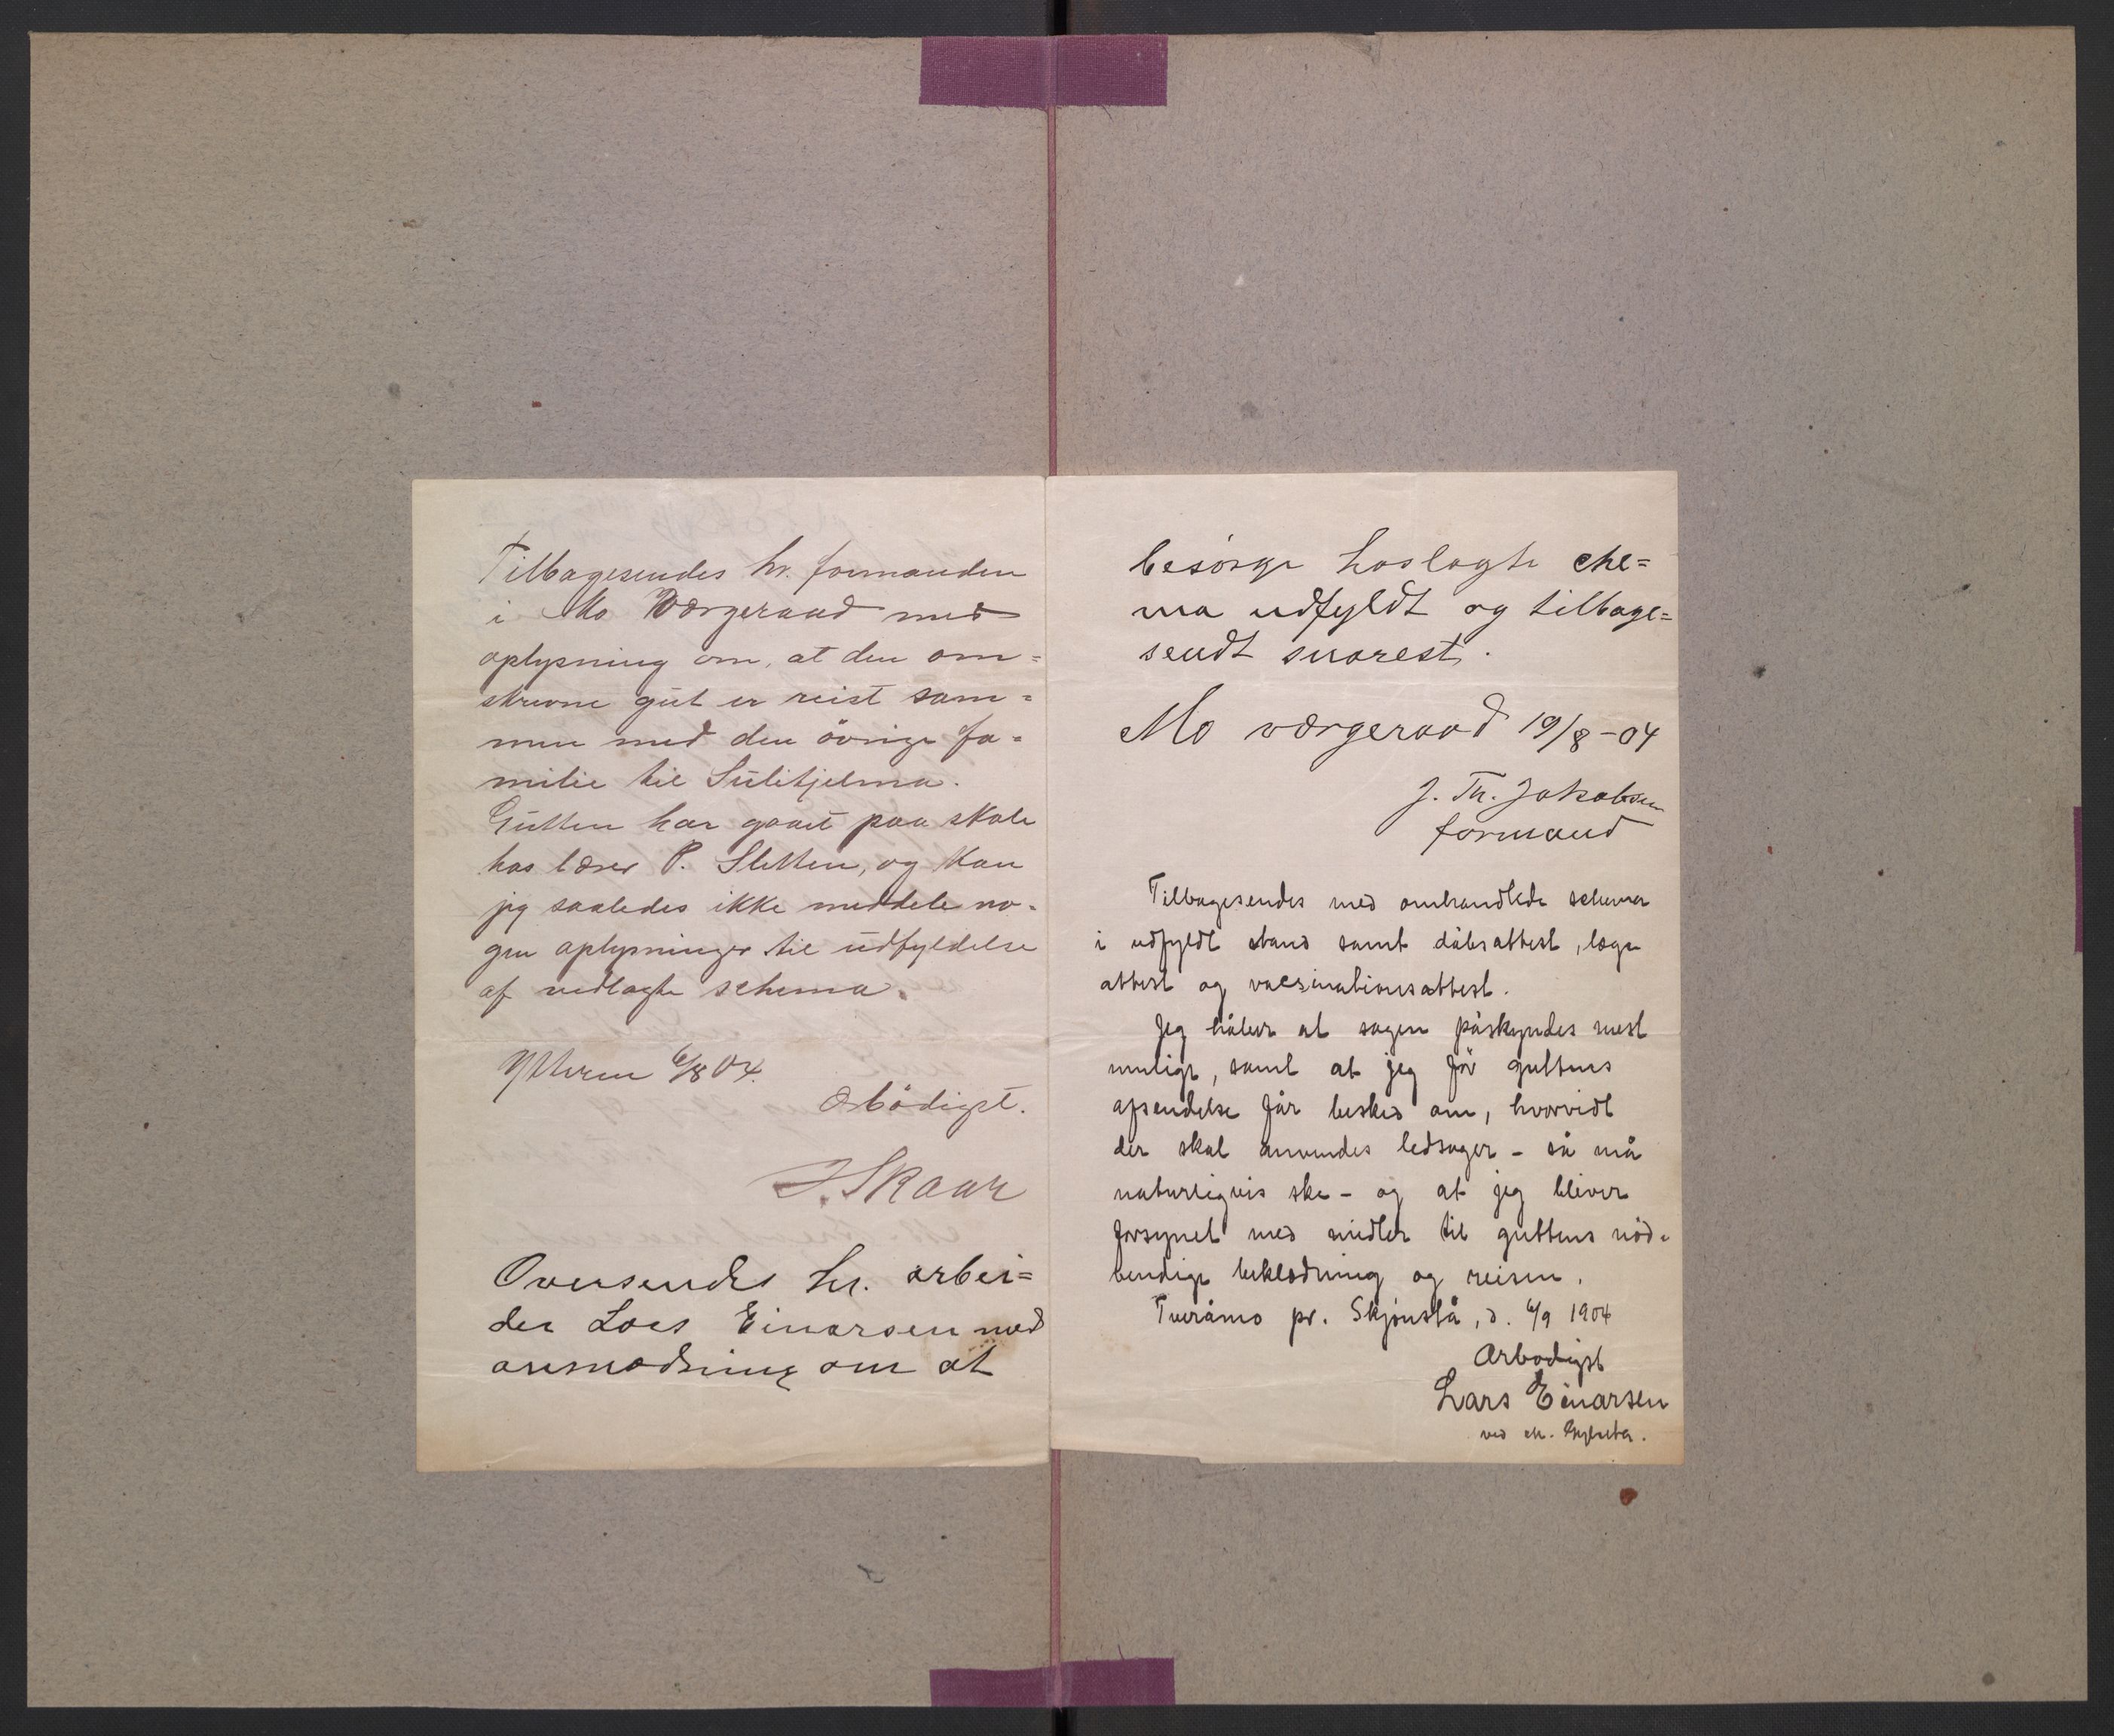 Tilbagesendes hr. formanden
i Mo Værgeraad med
oplysning om, at den om=
skrevne gut er reist sam=
men med den övrige fa=
milie til Sulitjelma.
Gutten har gaaet paa skole
hos lærer P. Sletten, og kan
jeg saaledes ikke meddele no-
gen oplysninger til udfyldelse
af vedlagte schema.
Ytteren 6/8 04.
Ærbödigst.
J. Skaar
Oversendes hr. arbei=
der Lars Einarsen med
anmodning om at
besörge hoslagte che=
ma udfyldt og tilbage=
sendt snarest.
Mo værgeraad 19/8-04
J. Th. Jakobsen
formand
Tilbagesendes med omhandlede schema
i udfyldt stand samt dåbsattest, læge
attest og vacsinationsattest.
Jeg håber at sagen påskyndes mest
muligt, samt at jeg för guttens
afsendelse får besked om, hvorvidt
der skal anvendes ledsager - så må
naturligvis ske - og at jeg bliver
forsynet med midler til guttens nöd-
vendige beklædning og reisen.
Tveråmo pr. Skjönstå, d. 6/9 1904
Ærbødigst
Lars Einarsen
ved